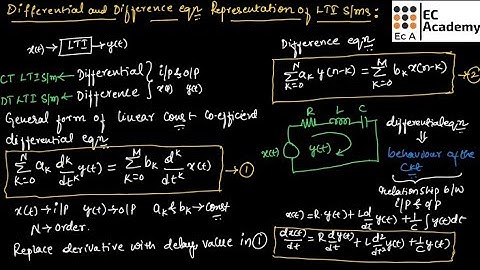 Differential and Difference eqn Representation of LTI S/ms:
EC
Academy
EC A
x(t) → LTI → y(t)
CT LTI S/m ← Differential } i/p & o/p
DT LTI S/m ← Difference } x(t) y(t)
General form of linear const co-efficient
differential eqn
∑_{K=0}^{N} a_k d^k/dt^k y(t) = ∑_{K=0}^{M} b_k d^k/dt^k x(t) → ①
x(t) → i/p y(t) → o/p a_k & b_k → const
N → order.
Replace derivative with delays value in ①
Difference eqn
∑_{K=0}^{N} a_k y(n-k) = ∑_{K=0}^{M} b_k x(n-k) → ②
R L C
x(t) y(t)
differential eqn
⇓
behaviour of the
Ckt
Relationship b/w
i/p & o/p
x(t) = R·y(t) + L d/dt y(t) + 1/C ∫ y(t) dt
dx(t)/dt = R dy(t)/dt + L d²/dt² y(t) + 1/C y(t)